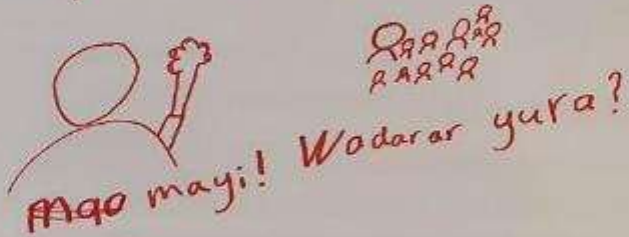 Mqo mayi! Wadarar yura?